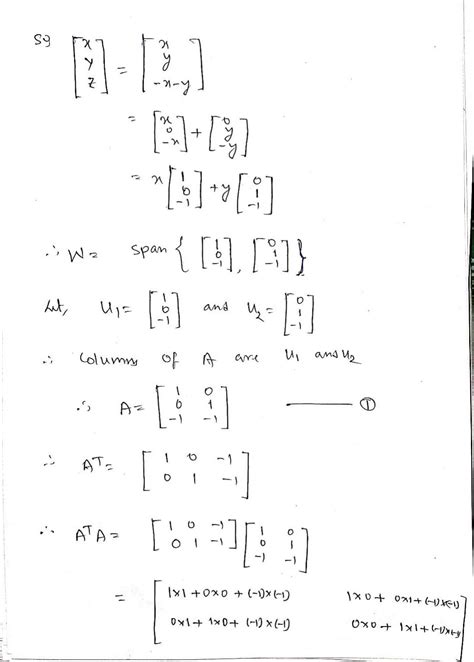 so [x y z] = [x y -x-y]
= [x 0 -x] + [0 y -y]
= x [1 0 -1] + y [0 1 -1]
∴ W = span { [1 0 -1], [0 1 -1] }
Let, u1 = [1 0 -1] and u2 = [0 1 -1]
∴ Columns of A are u1 and u2
∴ A = [1 0
0 1
-1 -1] ——— ①
∴ A^T = [1 0 -1
0 1 -1]
∴ A^T A = [1 0 -1
0 1 -1] [1 0
0 1
-1 -1]
= [1×1+0×0+(-1)×(-1) 1×0+0×1+(-1)×(-1)
0×1+1×0+(-1)×(-1) 0×0+1×1+(-1)×(-1)]